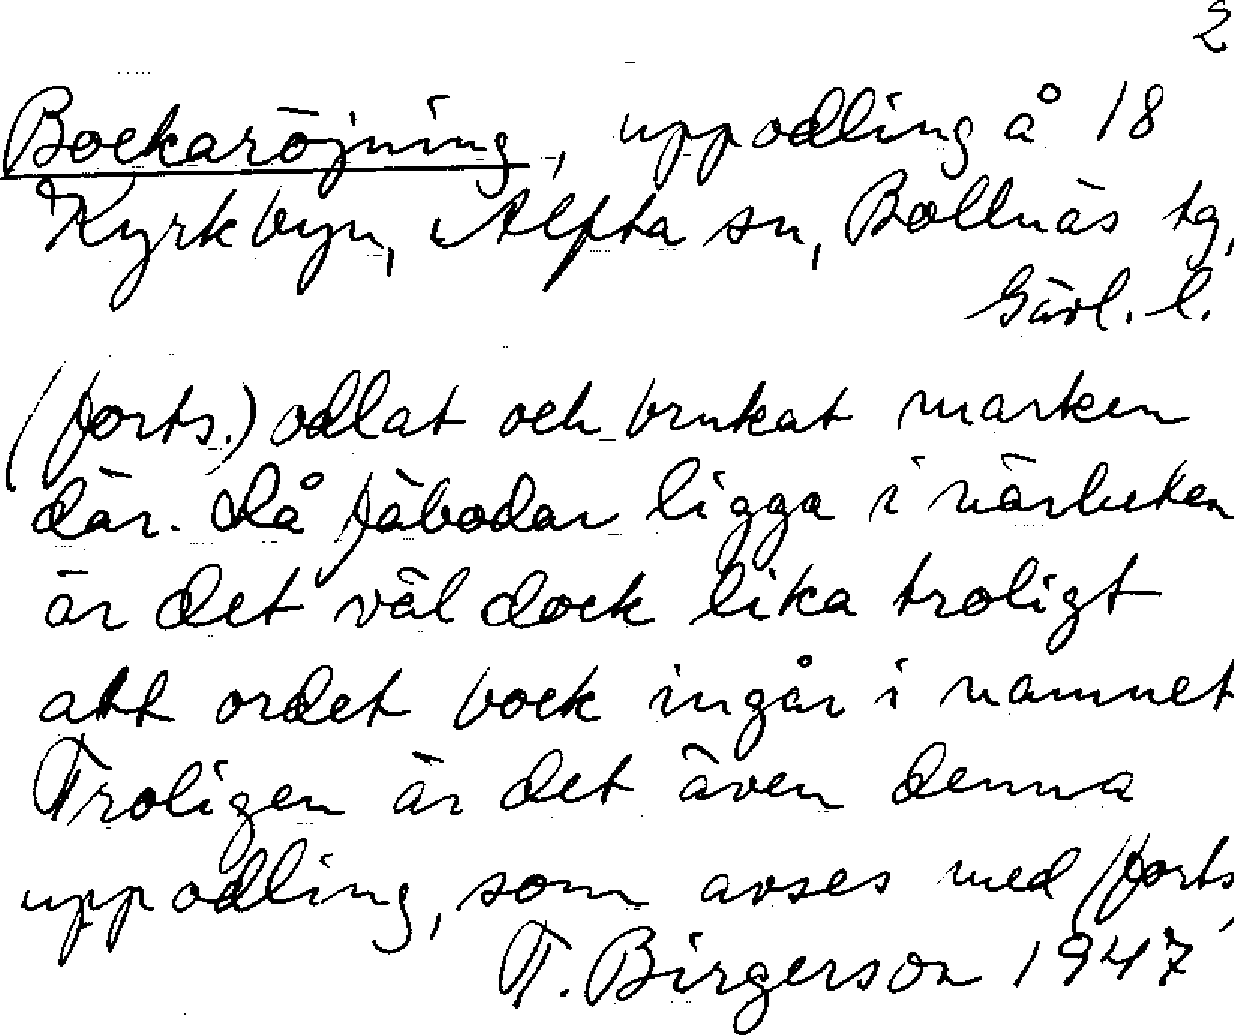 2
Bockaröjning, uppodling å 18
Kyrkbyn, Alfta sn, Bollnäs tg,
Gävl. l.
(forts.) odlat och brukat marken
där. Då fäbodar ligga i närheten
är det väl dock lika troligt
att ordet bock ingår i namnet
Troligen är det även denna
uppodling, som avses med forts,
T. Birgerson 1947